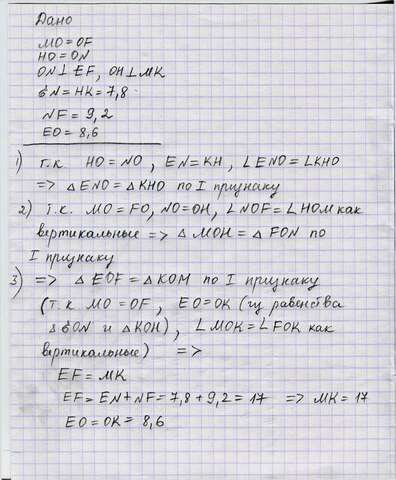 Дано
MO = OF
HO = ON
ON ⊥ EF, OH ⊥ MK
EN = HK = 7,8
NF = 9,2
EO = 8,6
1) т.к HO = NO, EN = KH, ∠ENO = ∠KHO
=> △ENO = △KHO по I признаку
2) Т.к. MO = FO, NO = OH, ∠NOF = ∠HOM как
вертикальные => △MOH = △FON по
I признаку
3) => △EOF = △KOM по I признаку
(т.к MO = OF, EO = OK (из равенства
△EON и △KOH), ∠MOK = ∠FOK как
вертикальные) =>
EF = MK
EF = EN + NF = 7,8 + 9,2 = 17 => MK = 17
EO = OK = 8,6